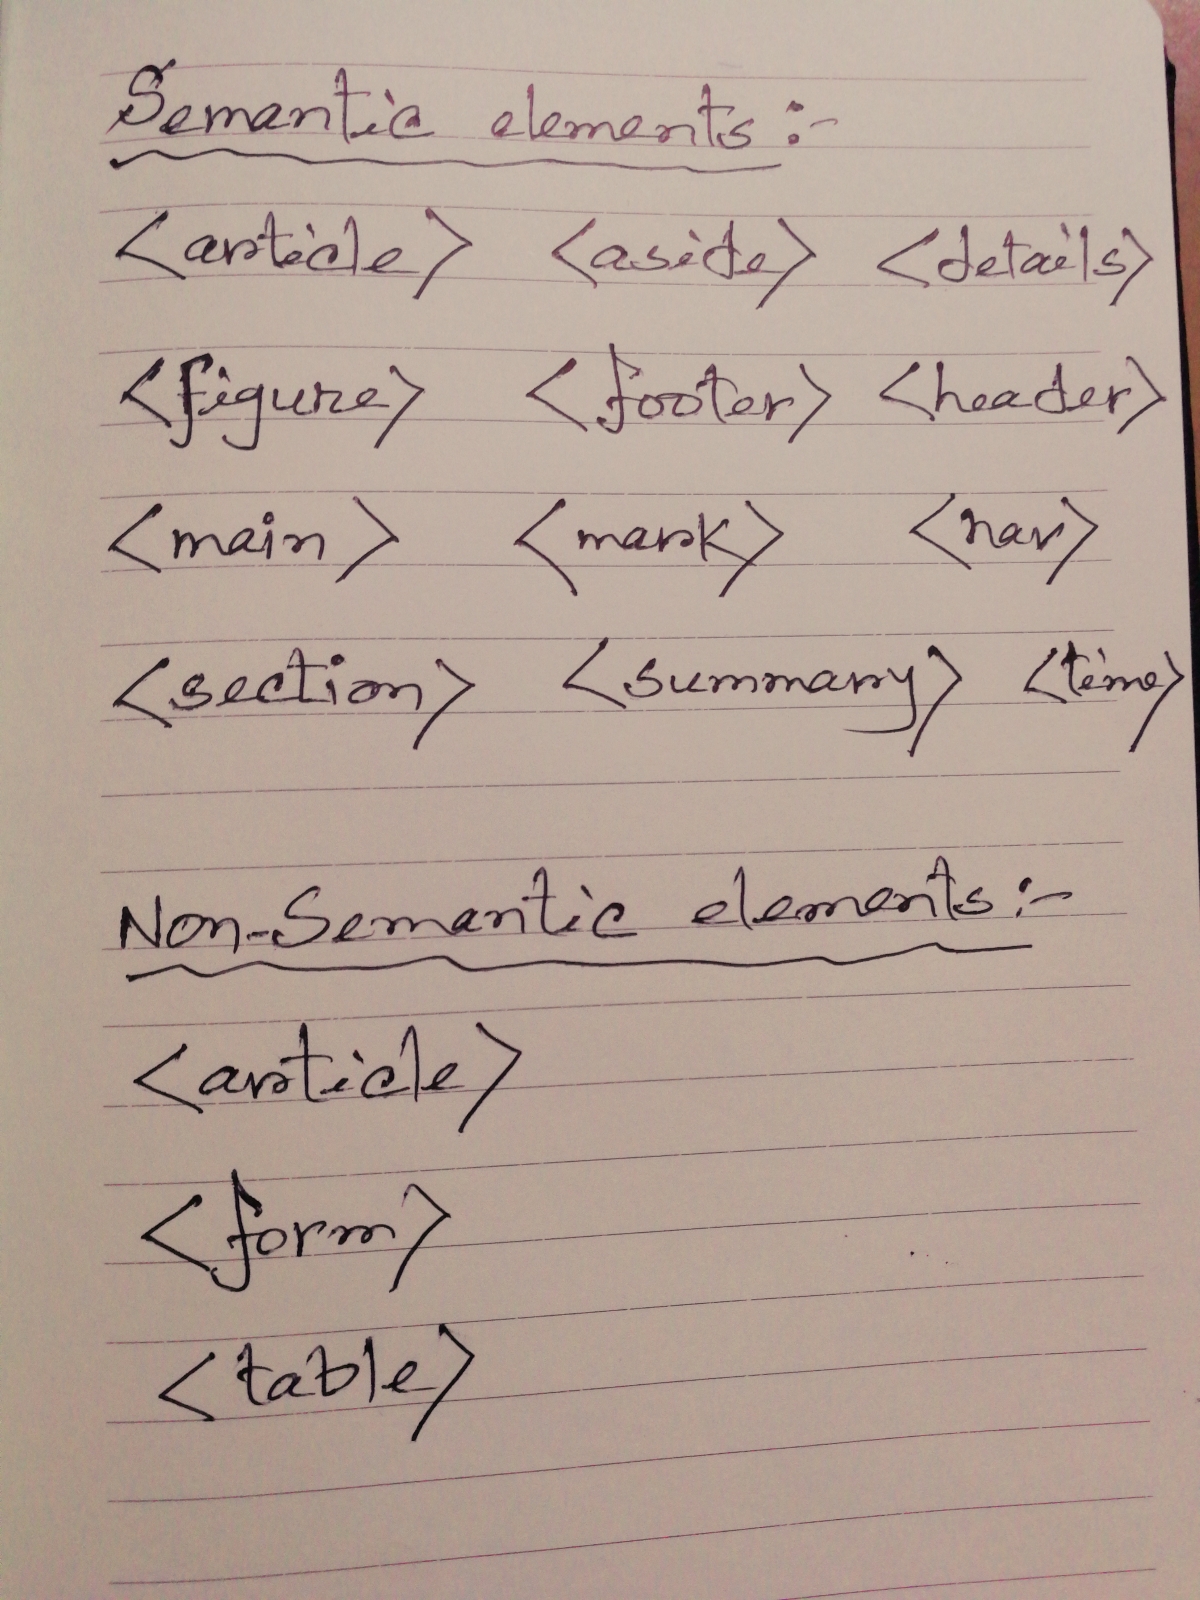 Semantic elements :-
<article> <aside> <details>
<figure> <footer> <header>
<main> <mark> <nav>
<section> <summary> <time>
Non-Semantic elements :-
<article>
<form>
<table>